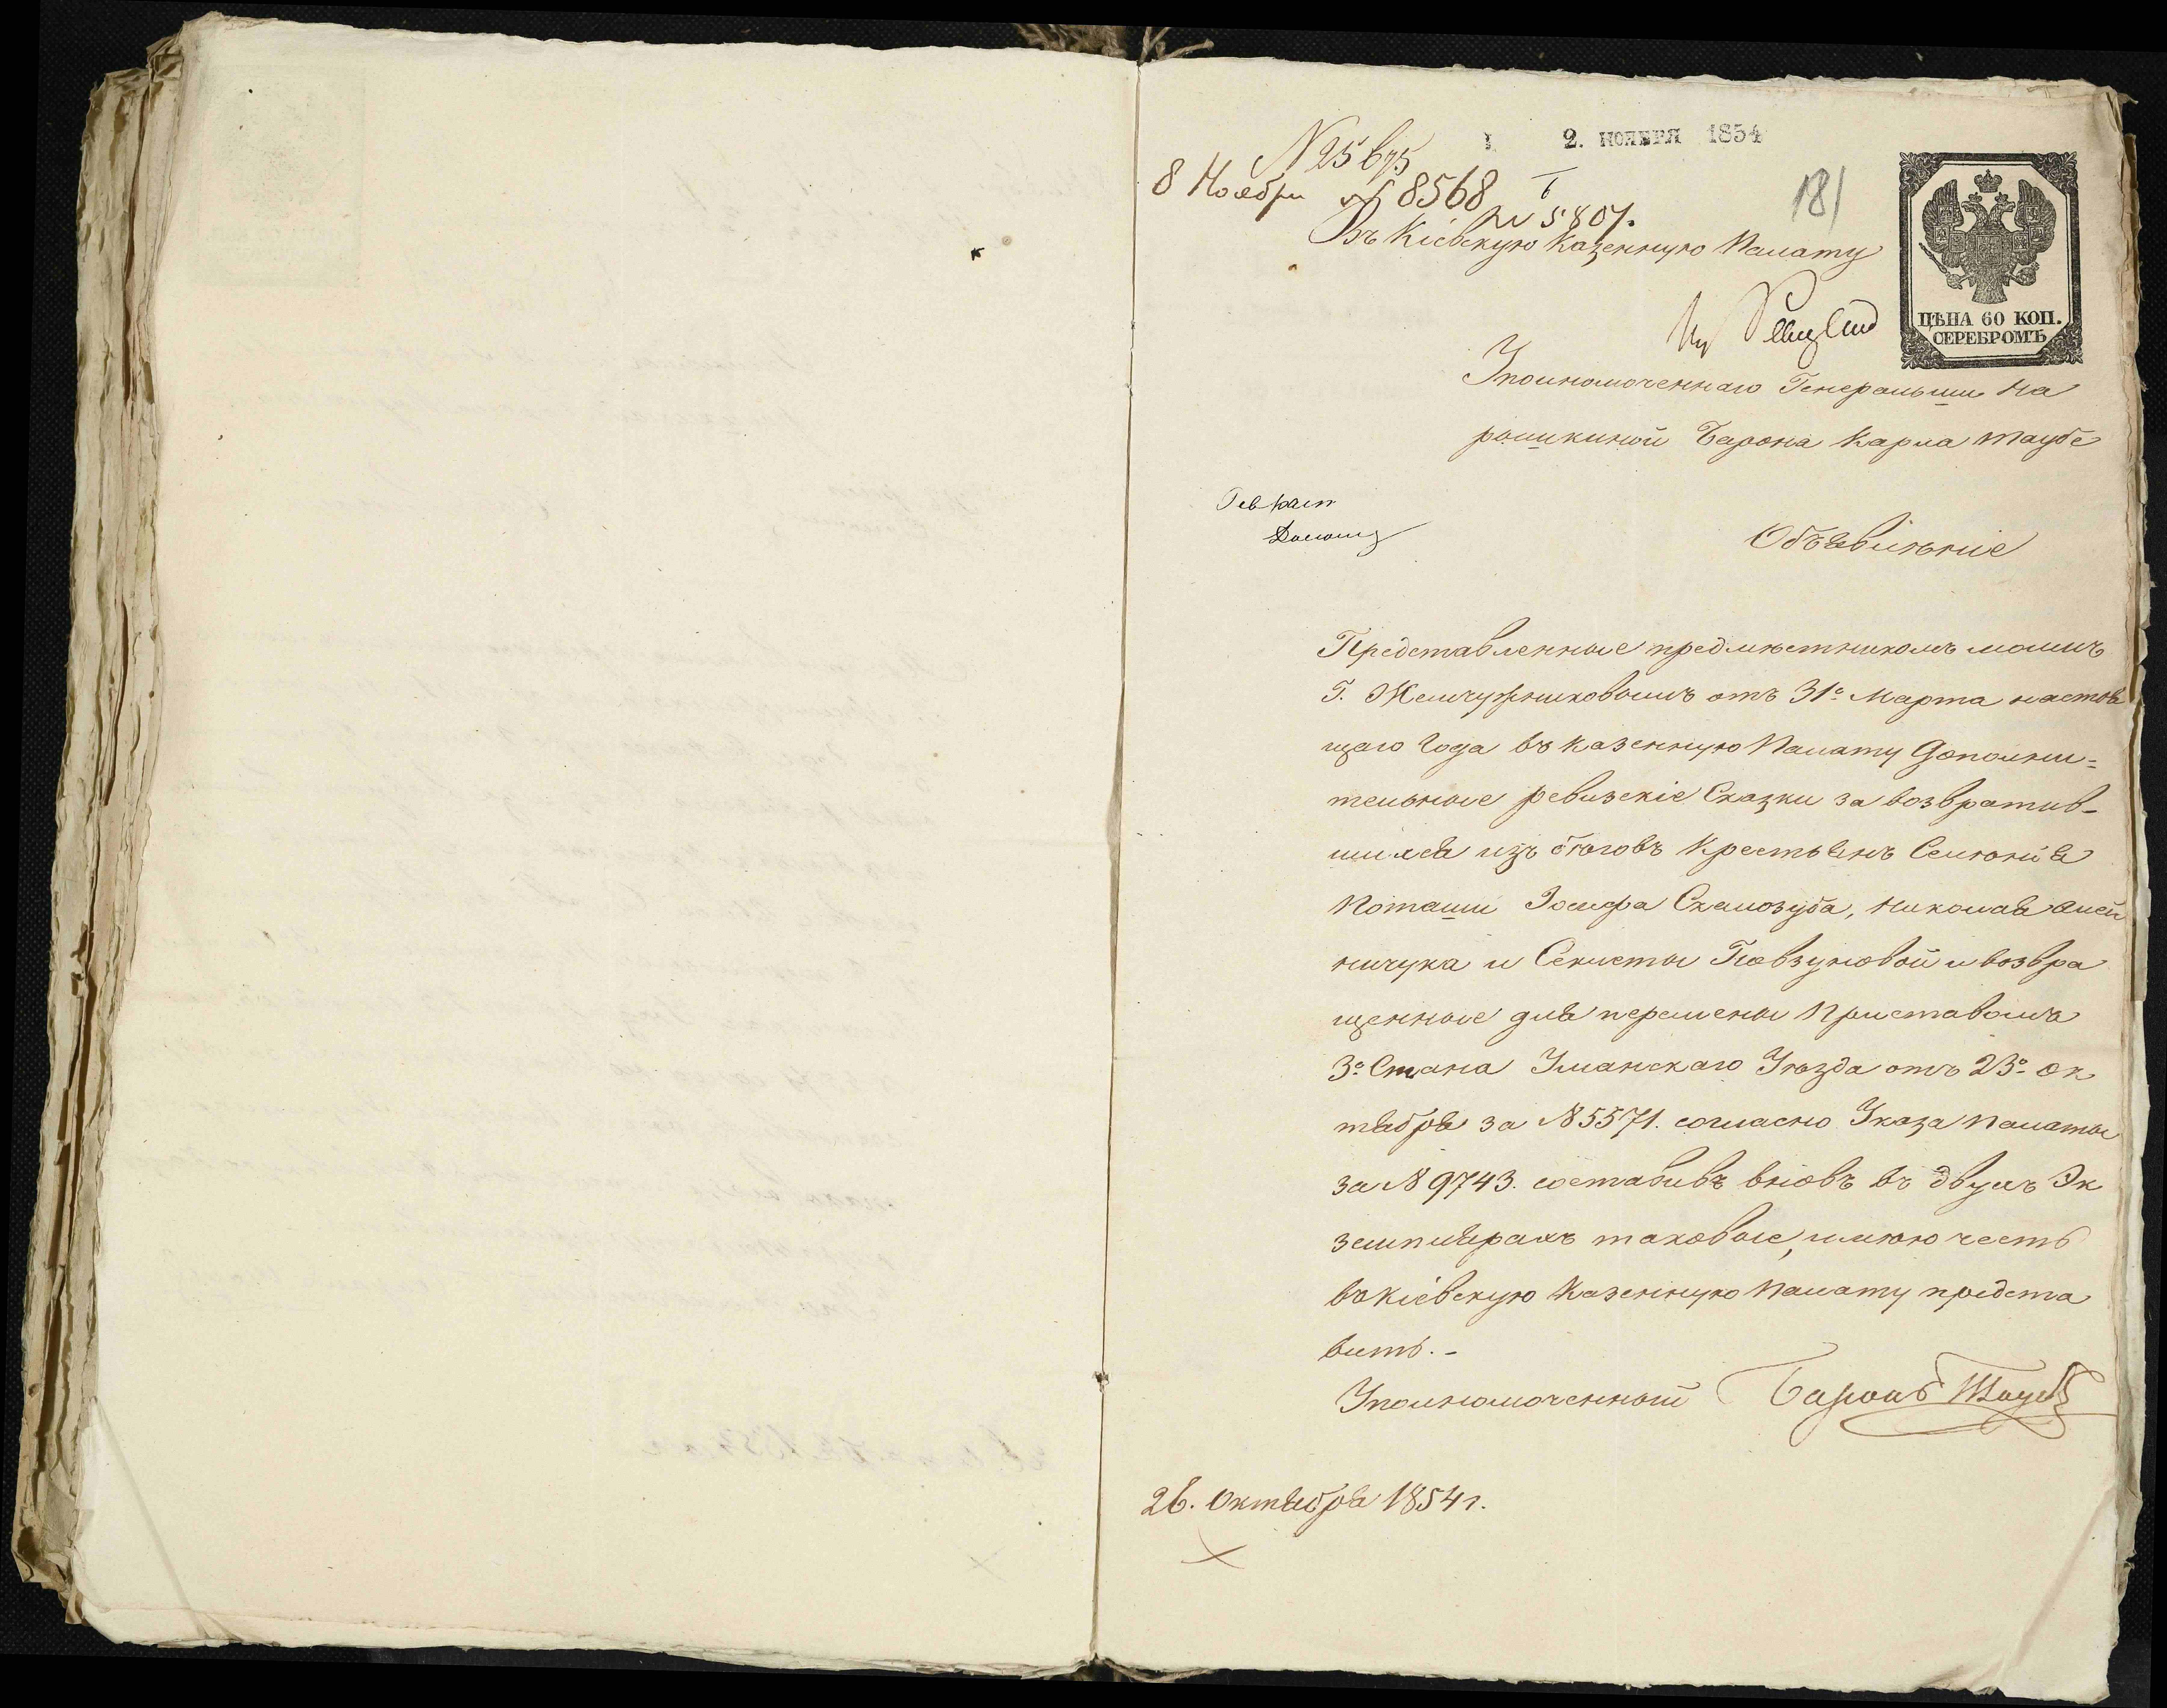 2. НОЯБРЯ 1854
№ 25
8 Ноября № 8568
№ 5807.
181
Въ Кіевскую Казенную Палату
ЦѢНА 60 КОП.
СЕРЕБРОМЪ
Уполномоченнаго Генеральши На
рышкиной Барона Карла Таубе
Объявленіе
Представленные предмѣстникомъ моимъ
Г. Жемчужниковымъ отъ 31º Марта настоя
щаго Года въ Казенную Палату Дополни=
тельные ревизскіе Сказки за возвратив-
шихся изъ бѣговъ Крестьянъ Семюнія
Поташи Іосифа Скалозуба, Николая Олей
ничука и Секлеты Повзуновой и возвра
щенные для перемены Приставомъ
3º Стана Уманскаго Уѣзда отъ 23º Ок
тября за № 5571. согласно Указа Палаты
за № 9743. составивъ вновъ въ двухъ Эк
земплярахъ таковые, имѣю честь
въ Кіевскую Казенную Палату предста
вить.-
Уполномоченный Баронъ Таубе
26. Октября 1854 г.